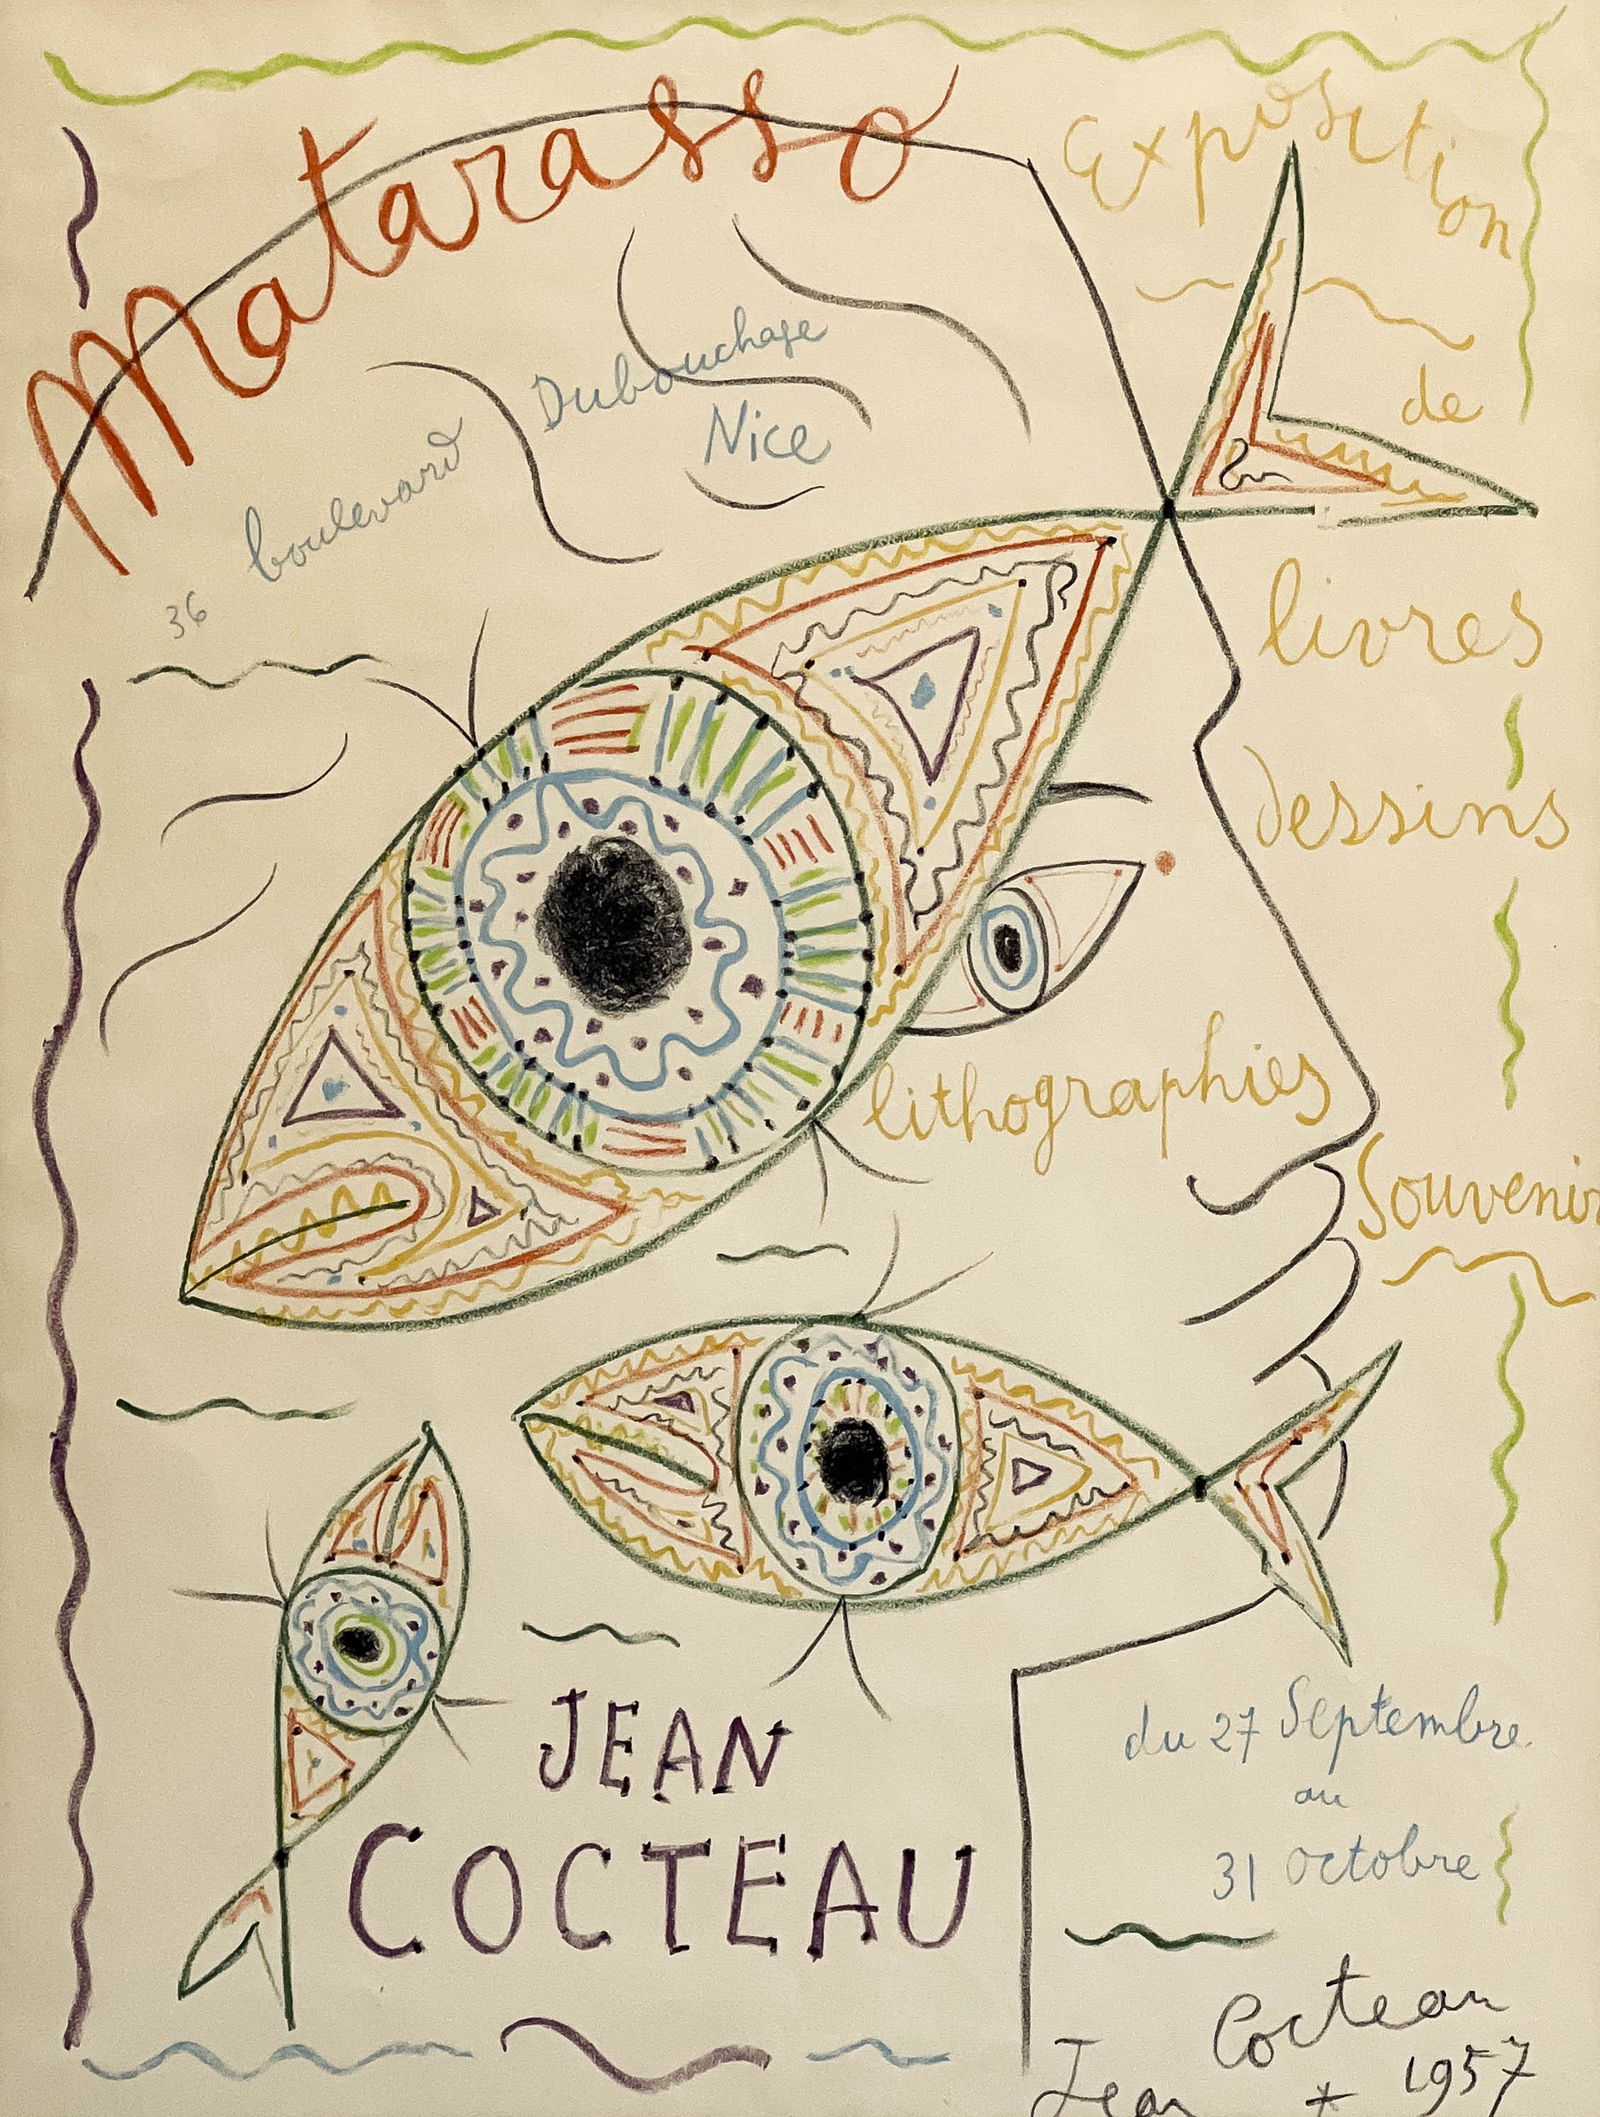 Matarasso
36 boulevard Dubouchage
Nice
Exposition
de
livres
dessins
lithographies
Souvenirs
du 27 Septembre
au
31 octobre
JEAN
COCTEAU
Jean Cocteau
* 1957